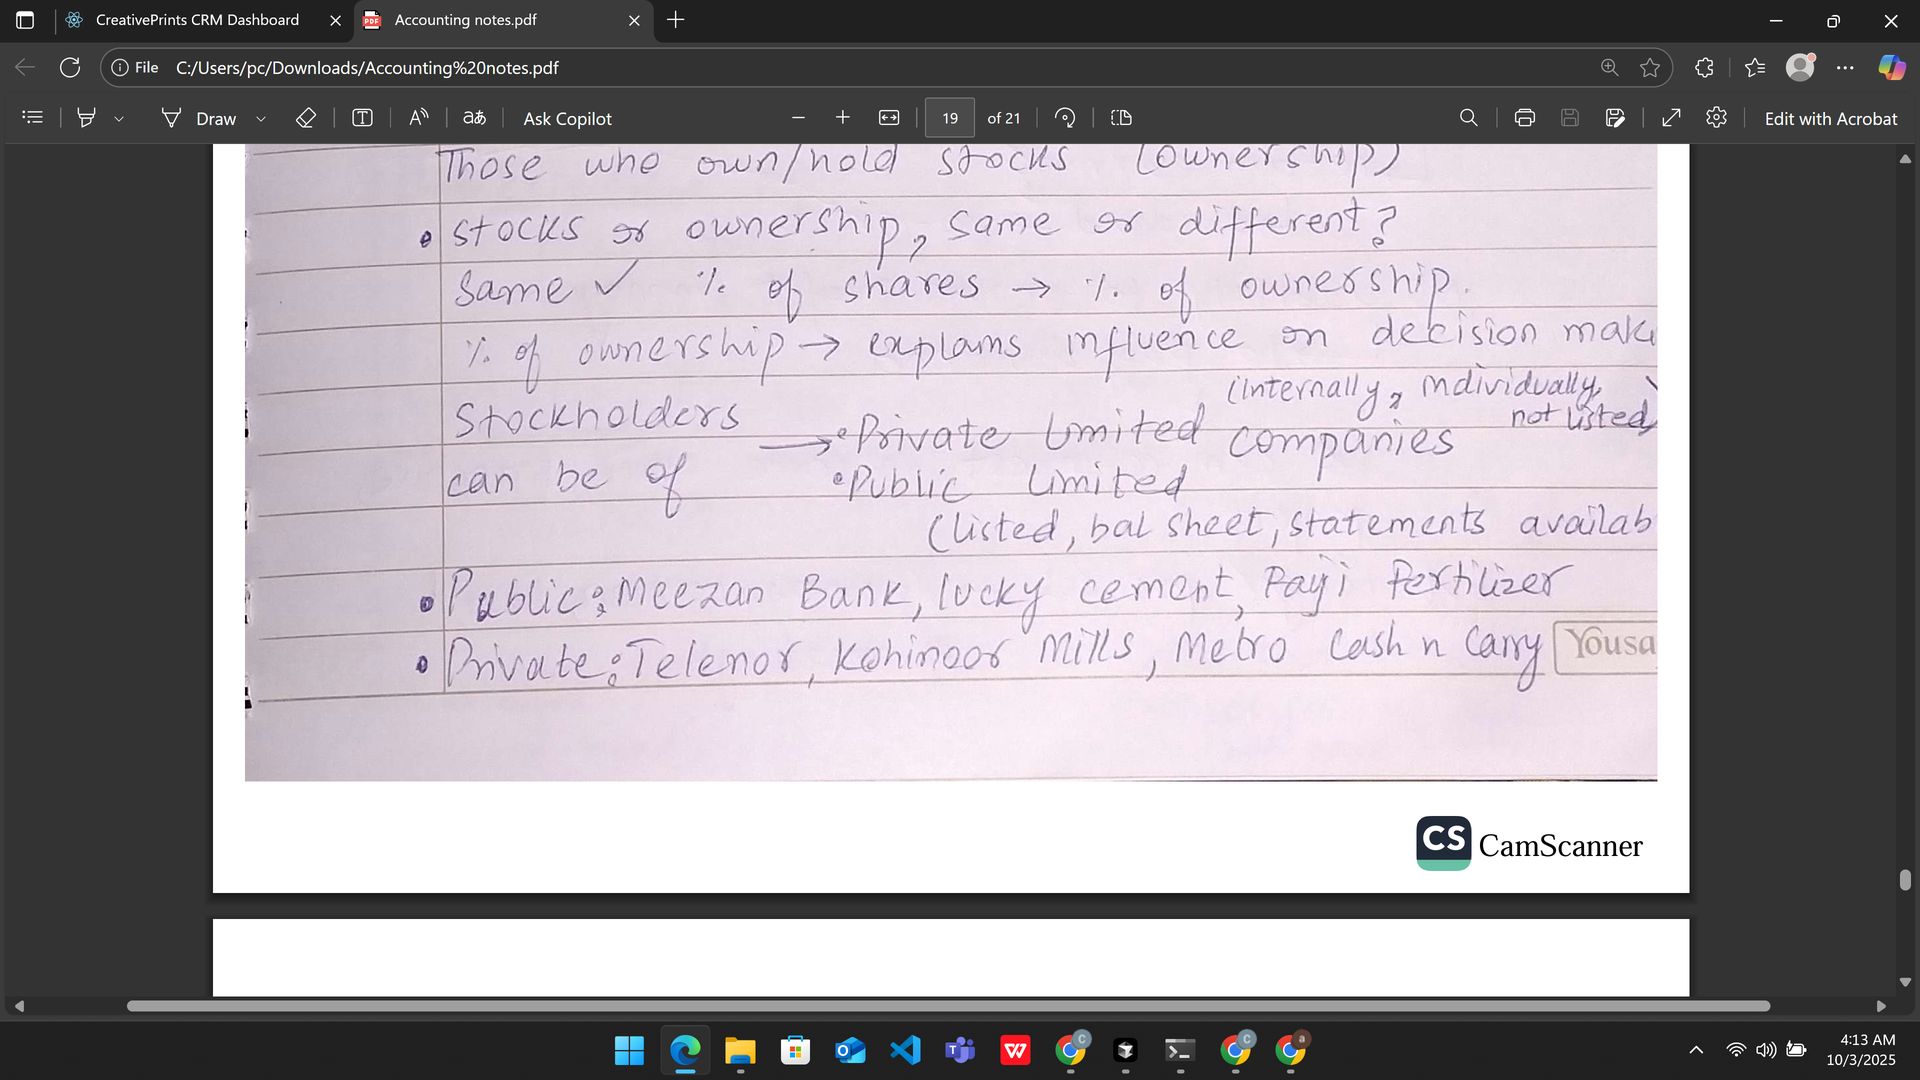 CreativePrints CRM Dashboard
Accounting notes.pdf
File C:/Users/pc/Downloads/Accounting%20notes.pdf
Draw
aあ
Ask Copilot
19 of 21
Edit with Acrobat
Those who own/hold stocks (ownership)
• stocks or ownership, same or different?
Same ✓ % of shares → % of ownership.
% of ownership → explains influence on decision maki
(internally, individually,
not listed)
Stockholders → • Private limited companies
can be of • Public limited
(listed, bal sheet, statements availab
• Public: Meezan Bank, lucky cement, Fauji Fertilizer
• Private: Telenor, Kohinoor Mills, Metro Cash n Carry
Yousa
CS CamScanner
4:13 AM
10/3/2025